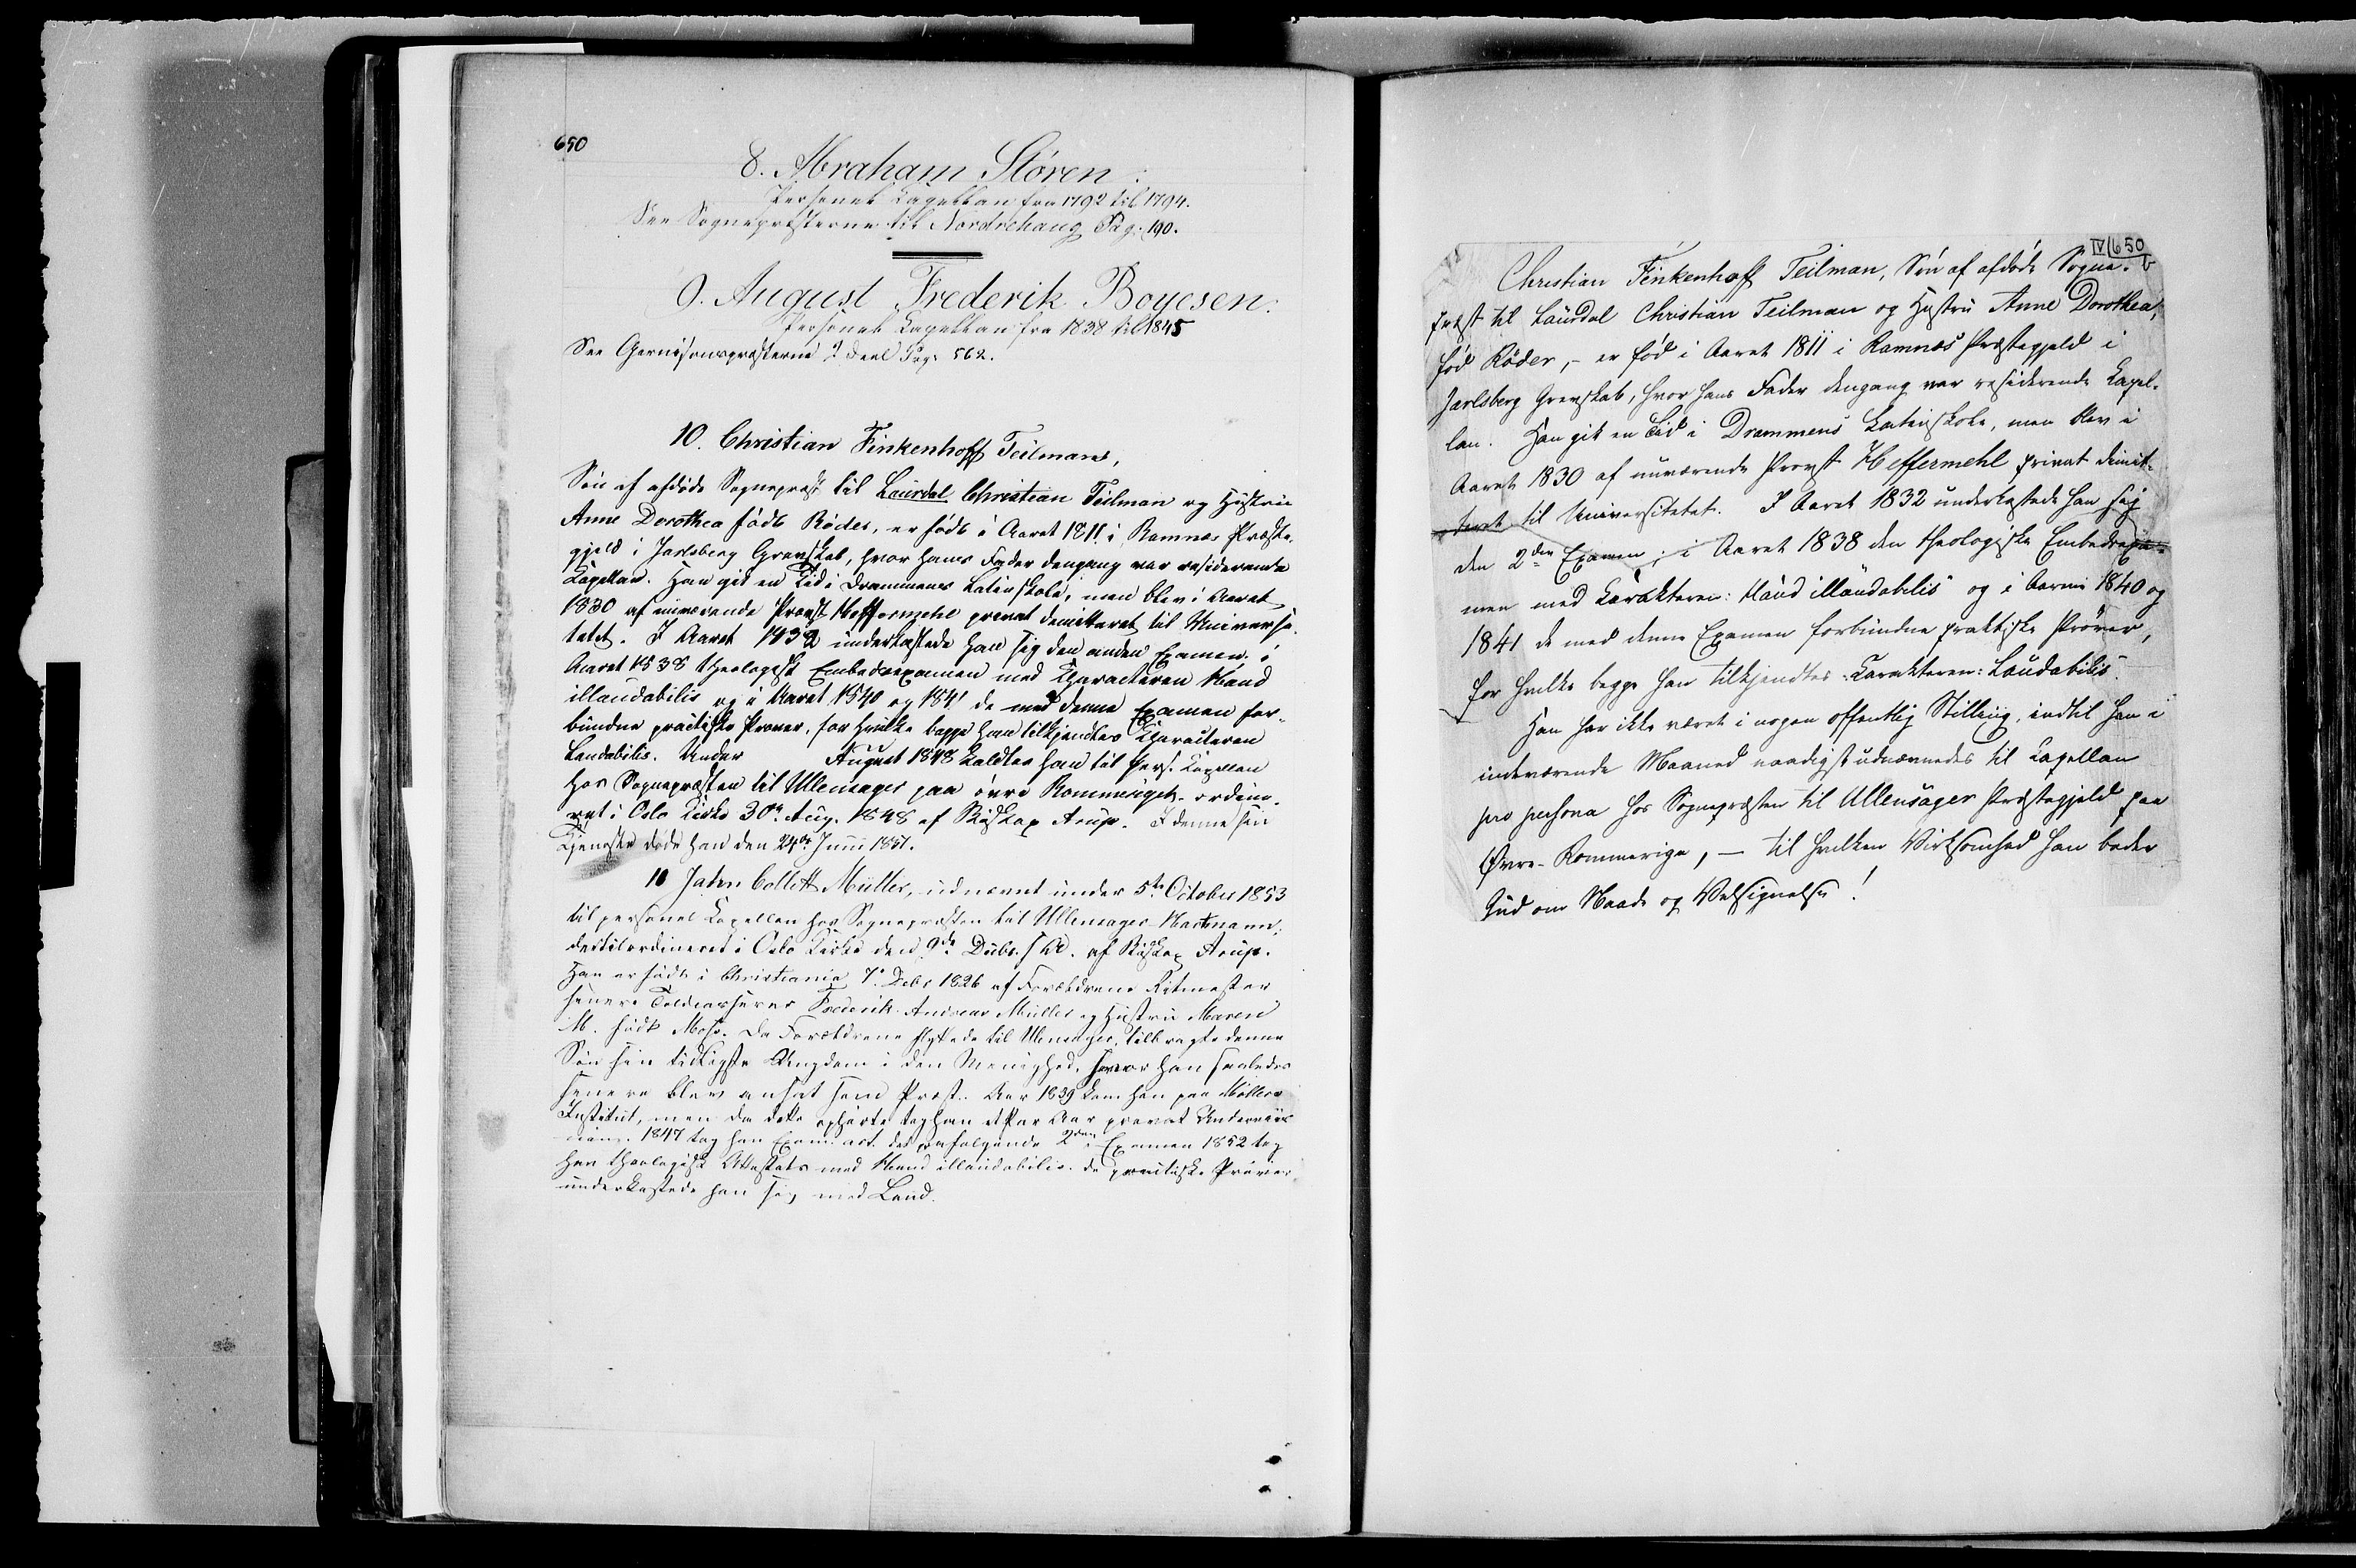 650
8. Abraham Stören:
Personel Kapellan fra 1792 til 1794.
See Sognepræsterne til Nordrehaug Pag. 190.
9. August Frederik Boyesen:
Personel Kapellan fra 1838 til 1845
See Garnisonspræsterne 2 Deel Pag. 562.
10. Christian Finkenhoff Teilman,
Sön af afdöde Sognepræst til Laurdal Christian Teilman og Hustru
Anne Dorothea födt Röder, er födt i Aaret 1811 i Ramnes Præste-
gjeld i Jarlsberg Grevskab, hvor hans Fader dengang var residerende
Kapellan. Han gik en Tid i Drammens Latinskole, men blev i Aaret
1830 af nuværende Provst Heffermehl privat demitteret til Universi-
tetet. I Aaret 1832 underkastede han sig den anden Examen, i
Aaret 1838 theologisk Embedsexamen med Characteren Haud
illaudabilis og i Aaret 1840 og 1841 de med denne Examen for-
bundne practiske Prøver, for hvilke begge han tilkjendtes Characteren
Laudabilis. Under August 1848 kaldtes han til pers. Kapellan
hos Sognepræsten til Ullensager paa övre Rommerige - ordine-
ret i Oslo Kirke 30te Aug. 1848 af Biskop Arup. I denne sin
Tjeneste döde han den 24de Juni 1851.
11 Jahn Collett Müller, udnævnt under 5te October 1853
til personel Kapellan hos Sognepræsten til Ullensager Hartmann,
dertil ordineret i Oslo Kirke den 9de Decbr. s. A. af Biskop Arup.
Han er födt i Christiania 7. Debr 1826 af Forældrene Ritmester
senere Toldkasserer Frederik Andreas Müller og Hustru Maren
M. födt Moss. Da Forældrene flyttede til Ullensager, tilbragte denne
Sön sin tidligste Ungdom i den Menighed, hvor han saaledes
senere blev ansat som Præst. Aar 1839 kom han paa Möllers
Institut, men da dette ophörte tog han et Par Aar privat Underviis-
ning. 1847 tog han Exam. art. det paafölgende 2den Examen 1852 tog
han theologisk Attestats med Haud illaudabilis. de practiske Prøver
underkastede han sig med Laud.
IV/650
b
Christian Finkenhoff Teilman, Sön af afdöde Sogne-
præst til Laurdal Christian Teilman og Hustru Anne Dorothea,
föd Röder, - er föd i Aaret 1811 i Ramnæs Præstegjeld i
Jarlsberg Grevskab, hvor hans Fader dengang var residerende Kapel-
lan. Han gik en Tid i Drammens Latinskole, men blev i
Aaret 1830 af nuværende Provst Heffermehl privat dimit-
teret til Universitetet. I Aaret 1832 underkastede han sig
den 2den Examen; i Aaret 1838 den theologiske Embedsexa-
men med Karakteren: Haud illaudabilis og i Aarene 1840 og
1841 de med denne Examen forbundne praktiske Prøver,
for hvilke begge han tilkjendtes Karakteren: Laudabilis.
Han har ikke været i nogen offentlig Stilling, indtil han i
indeværende Maaned naadigst udnævnedes til Kapellan
pro persona hos Sognepræsten til Ullensager Præstegjeld paa
Øvre-Rommerige, - til hvilken Virksomhed han beder
Gud om Naade og Velsignelse!